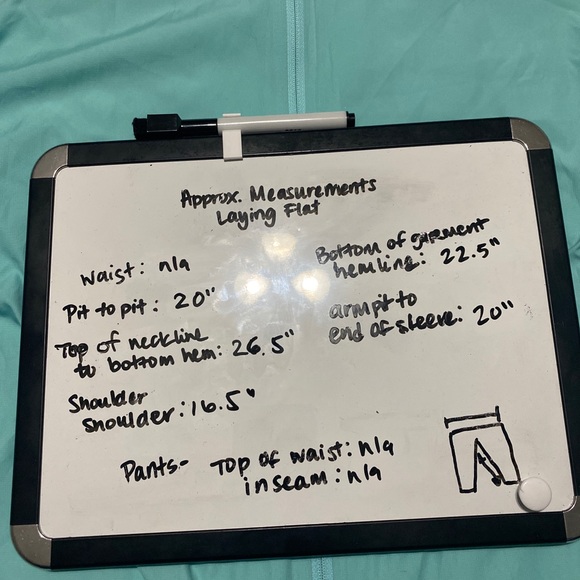 Approx. Measurements
Laying Flat
Waist: n/a
Pit to pit: 20"
Top of neckline
to bottom hem: 26.5"
Shoulder
shoulder: 16.5"
Bottom of garment
hemling: 22.5"
armpit to
end of sleeve: 20"
Pants- Top of waist: n/a
inseam: n/a